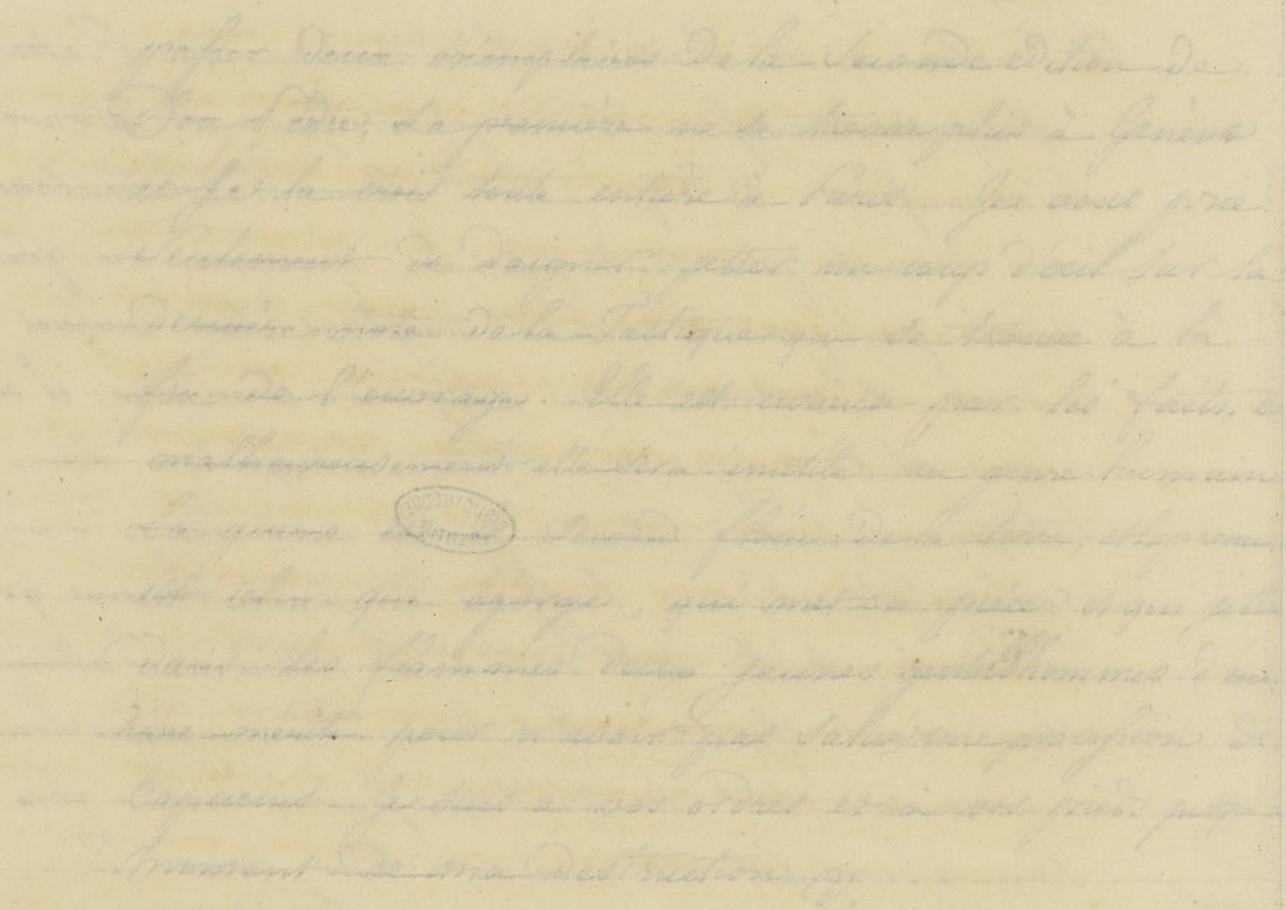 passer deux exemplaires de la seconde édition de
Don Pèdre; la première ne se trouve plus à Genève
et je la crois toute entière à Paris. Je vous prie
seulement de daigner jetter un coup d'œil sur la
dernière note de la Tactique qui se trouve à la
fin de l'ouvrage. Elle est curieuse par les faits, e
malheureusement elle sera inutile au genre humain
La guerre est le second fléau de la terre, et le premie
est celui qui égorge, qui met en pièces et qui jette
dans les flammes deux jeunes gentilshommes d'un
rare mérite pour n'avoir pas salué une procession de
capucins. Je suis à vos ordres et à vos pieds jusqu
moment de ma destruction
BIBLIOTHEQUE